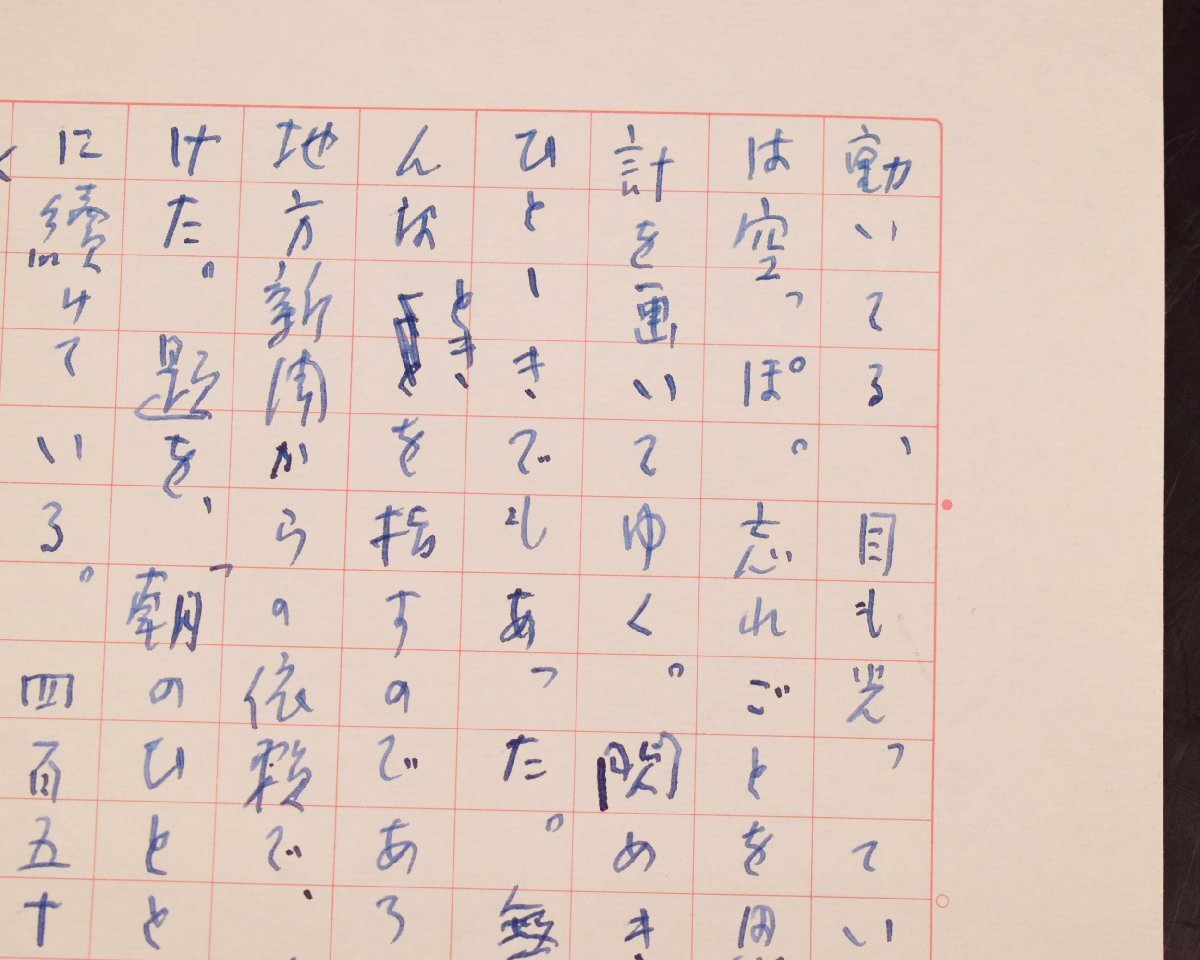 動いてる、目も光ってい
は空っぽ。忘れごとを
計を画いてゆく。閃めき
ひとゝきでもあった。無
んなときを指すのであろ
地方新聞からの依頼で、
けた。題を、「朝のひとと
に續けている。四百五十